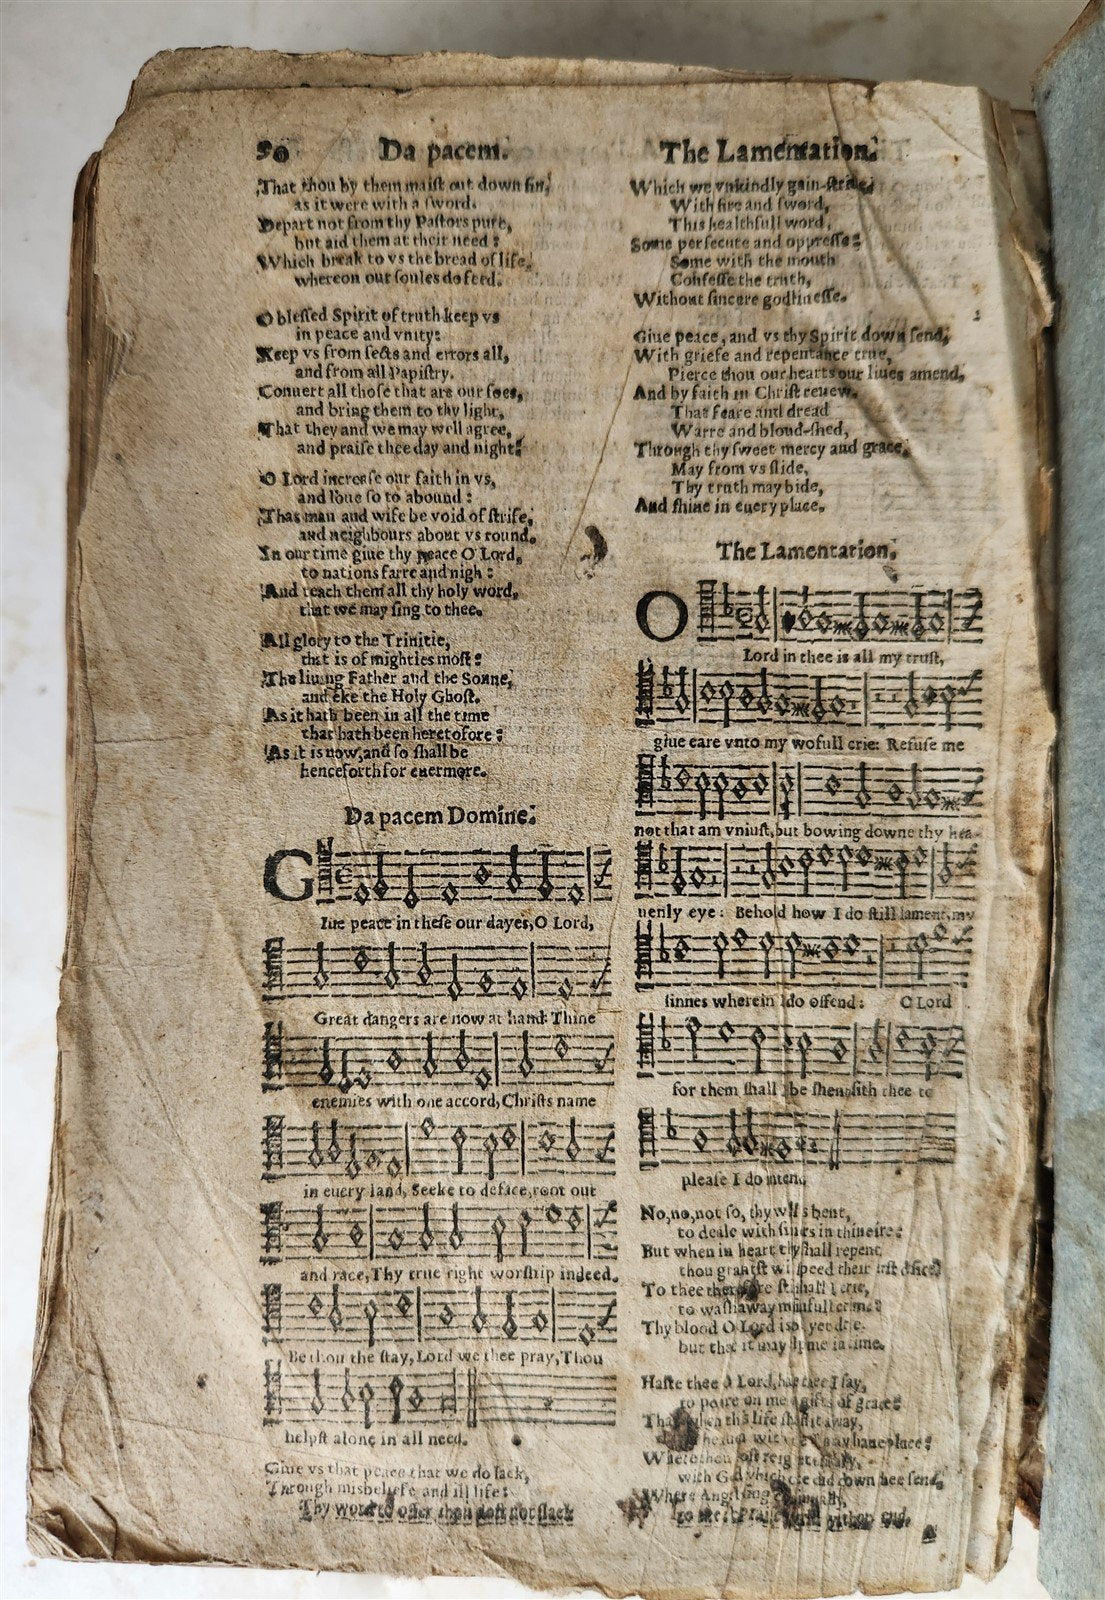 90 Da pacem.
That thou by them maist cut down sin,
as it were with a sword.
Depart not from thy Pastors pure,
but aid them at their need:
Which break to vs the bread of life,
whereon our soules do feed.
O blessed Spirit of truth keep vs
in peace and vnity:
Keep vs from sects and errors all,
and from all Papistry.
Conuert all those that are our foes,
and bring them to thy light,
That they and we may well agree,
and praise thee day and night:
O Lord increase our faith in vs,
and loue so to abound:
That man and wife be void of strife,
and neighbours about vs round.
In our time giue thy peace O Lord,
to nations farre and nigh:
And teach them all thy holy word,
that we may sing to thee.
All glory to the Trinitie,
that is of mighties most:
The liuing Father and the Sonne,
and eke the Holy Ghost.
As it hath been in all the time
that hath been heretofore:
As it is now, and so shall be
henceforth for euermore.
Da pacem Domine.
GIue peace in these our dayes, O Lord,
Great dangers are now at hand: Thine
enemies with one accord, Christs name
in euery land, Seeke to deface, root out
and race, Thy true right worship indeed.
Be thou the stay, Lord we thee pray, Thou
helpst alone in all need.
Giue vs that peace that we do lack,
Through misbeliefe and ill life:
Thy word to offer thou dost not slack
The Lamentation.
Which we vnkindly gain-striue,
With fire and sword,
This healthfull word,
Some persecute and oppresse:
Some with the mouth
Confesse the truth,
Without sincere godlinesse.
Giue peace, and vs thy Spirit down send,
With griefe and repentance true,
Pierce thou our hearts our liues amend,
And by faith in Christ renew.
That feare and dread
Warre and bloud-shed,
Through thy sweet mercy and grace,
May from vs slide,
Thy truth may bide,
And shine in euery place.
The Lamentation.
O Lord in thee is all my trust,
giue eare vnto my wofull crie: Refuse me
not that am vniust, but bowing downe thy hea-
uenly eye: Behold how I do still lament, my
sinnes wherein I do offend: O Lord
for them shall I be shent, sith thee to
please I do intend.
No, no, not so, thy will is bent,
to deale with sinners in thine ire:
But when in heart they shall repent
thou grantst with speed their iust desire:
To thee therefore still shall I crie,
to wash away my sinfull crime:
Thy blood O Lord is not yet drie,
but that it may me in time.
Haste thee O Lord, haste thee I say,
to poure on me gifts of grace:
That when this life shall flit away,
in heauen with thee I may haue place:
Where thou dost reign eternally,
with God which once did down thee send,
Where Angels sing continually,
to thee praise without end.